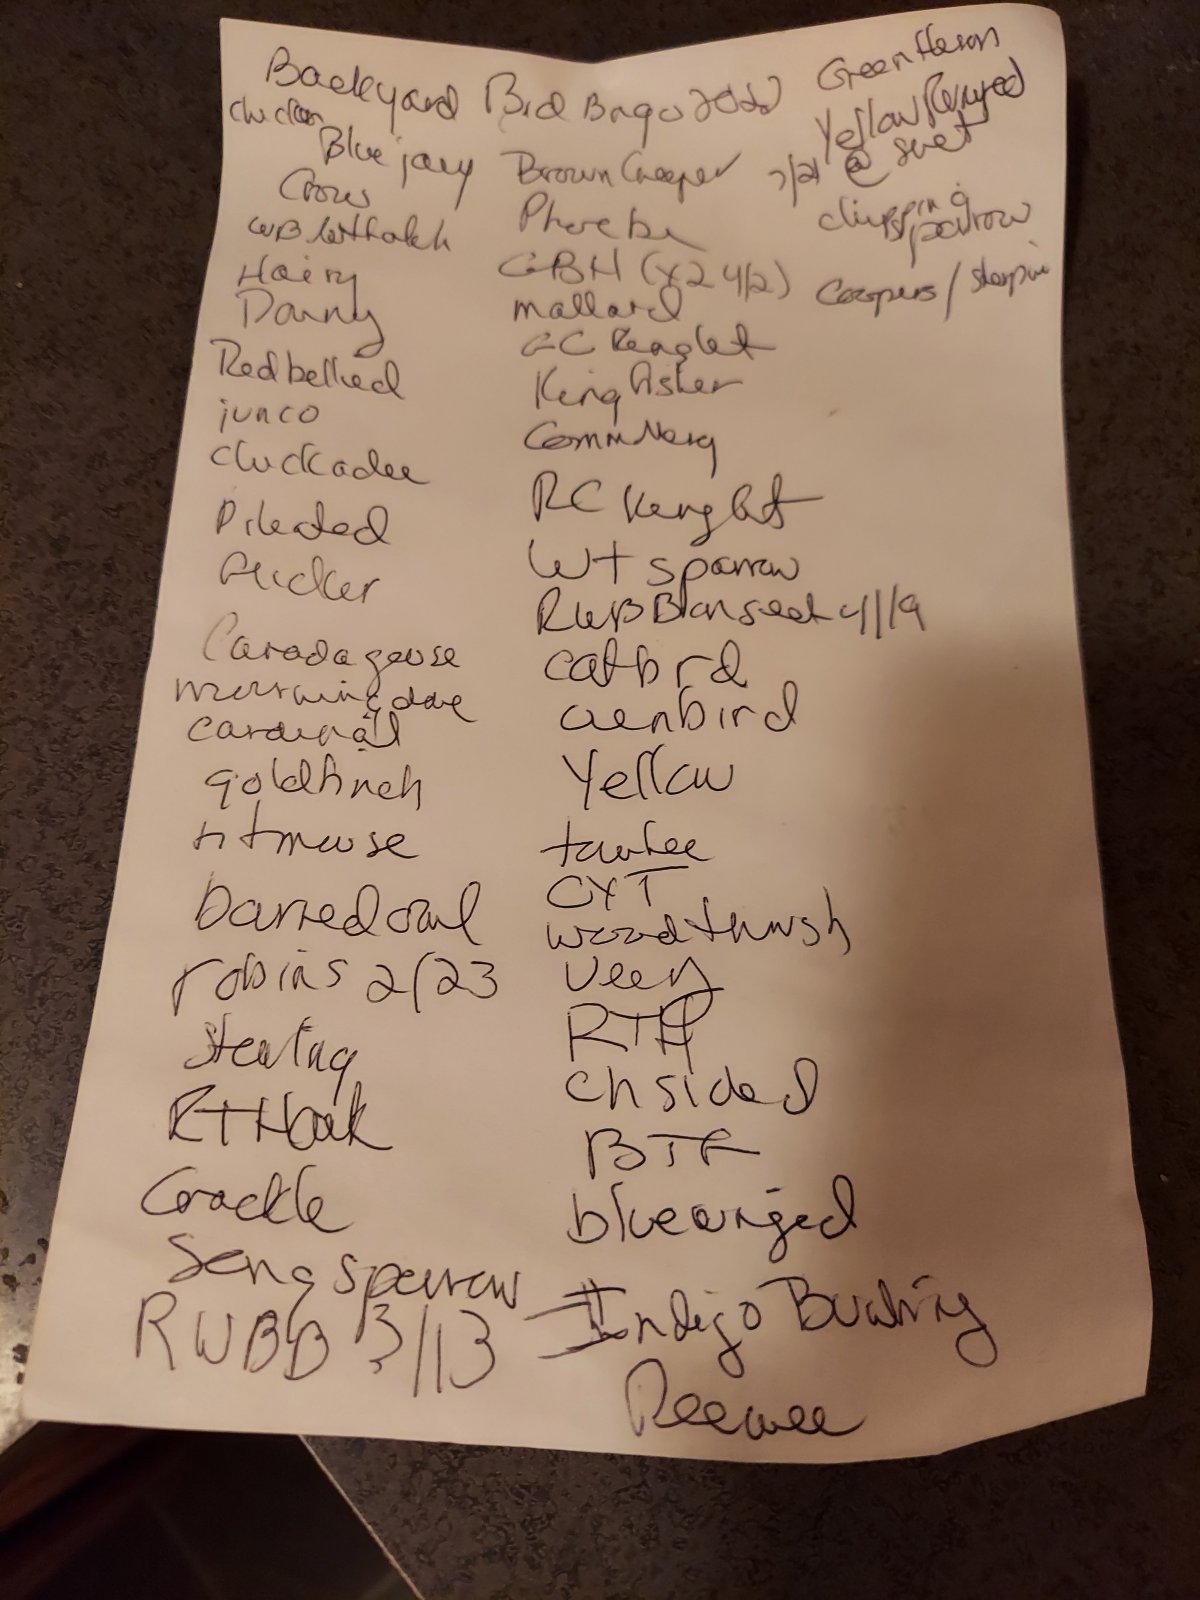 Backyard Bird Bingo 2022
chicken
Blue jay
Crow
WB Nuthatch
Hairy
Downy
Red bellied
junco
chickadee
Pileated
flicker
Canada goose
mourning dove
cardinal
goldfinch
titmouse
barred owl
robins 2/23
Starling
RT Hawk
Grackle
Song sparrow
RWBB 3/13
Brown Creeper
Phoebe
GBH (x2 4/2)
mallard
GC Kinglet
King fisher
Comm Merg
RC Kinglet
WT sparrow
RWB Blanseet 4/19
catbird
ovenbird
Yellow
towhee
CYT
wood thrush
Veery
RTH
Ch sided
BTG
bluewinged
Indigo Bunting
Peewee
Green Heron
Yellow Rumped
@ suet
chipping
sparrow
Coopers / sharpie